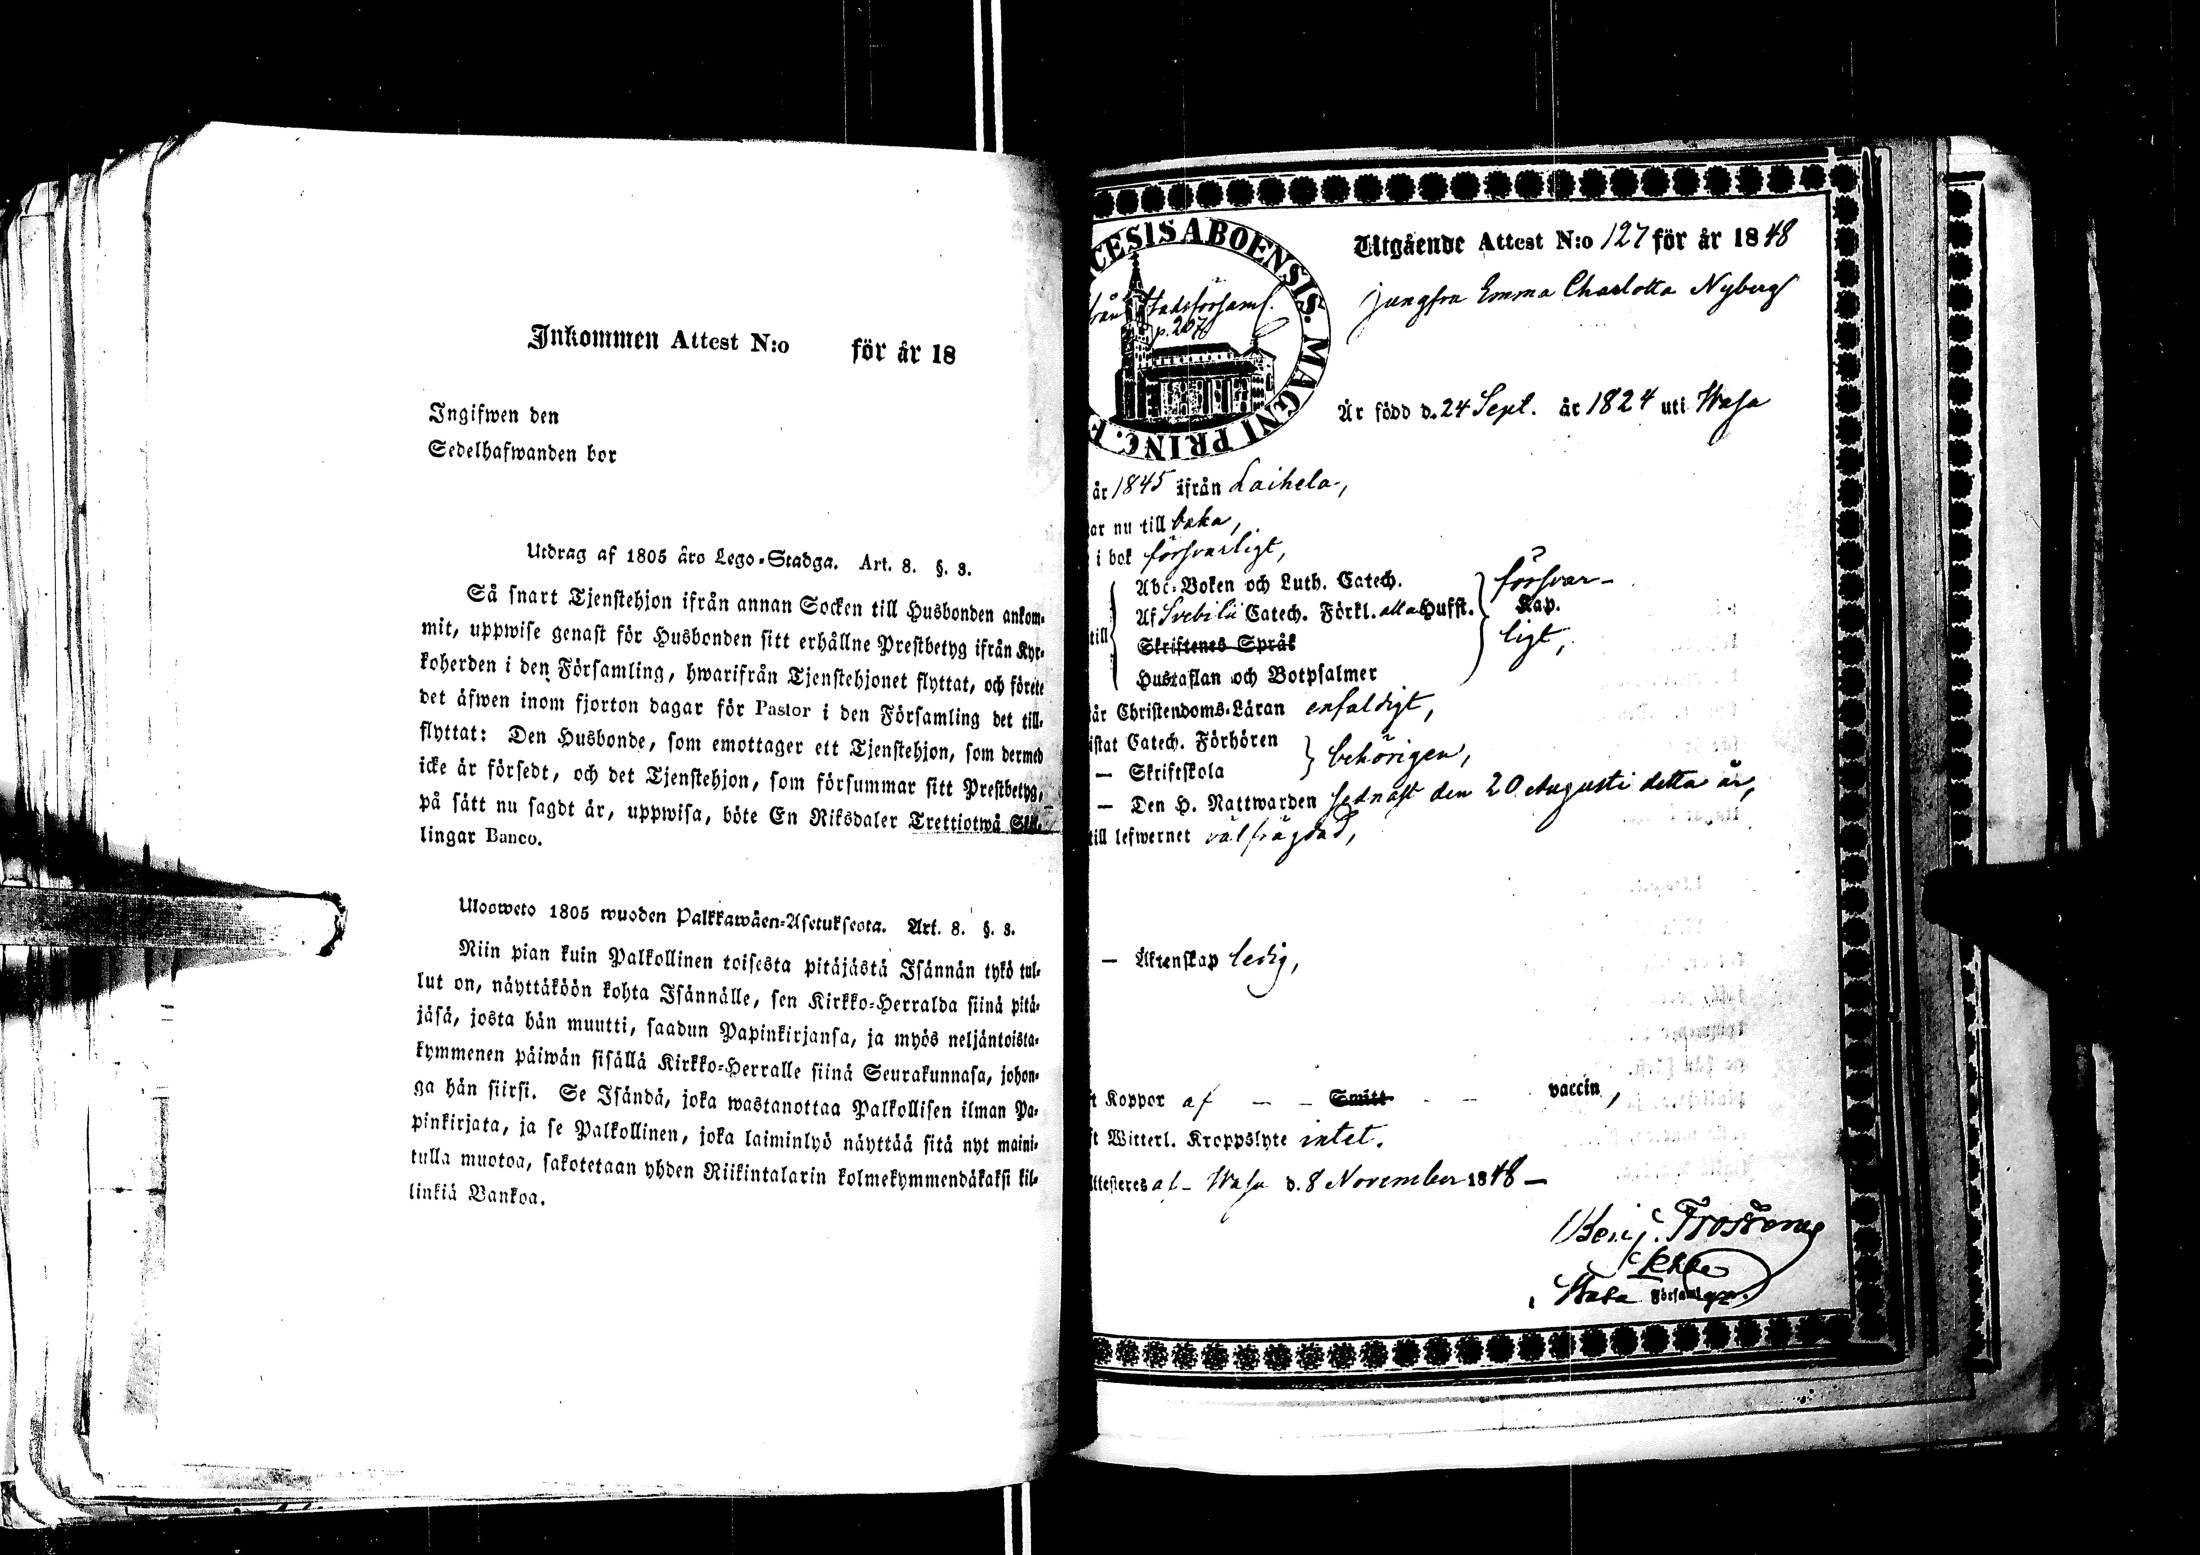 Inkommen Attest N:o för år 18
Ingifwen den
Sedelhafwanden bor
Utdrag af 1805 års Lego-Stadga. Art. 8. §. 3.
Så snart Tjenstehjon ifrån annan Socken till Husbonden ankom-
mit, uppwise genast för Husbonden sitt erhållne Prestbetyg ifrån Kyr-
koherden i den Församling, hwarifrån Tjenstehjonet flyttat, och förete
det äfwen inom fjorton dagar för Pastor i den Församling det till-
flyttat: Den Husbonde, som emottager ett Tjenstehjon, som dermed
icke är försedt, och det Tjenstehjon, som försummar sitt Prestbetyg,
på sätt nu sagdt är, uppwisa, böte En Riksdaler Trettiotwå Skil-
lingar Banco.
Ulosweto 1805 wuoden Palkkawäen-Asetuksesta. Art. 8. §. 3.
Niin pian kuin Palkollinen toisesta pitäjästä Isännän tykö tul-
lut on, näyttäköön kohta Isännälle, sen Kirkko-Herralda siinä pitä-
jäsä, josta hän muutti, saadun Papinkirjansa, ja myös neljäntoista-
kymmenen päiwän sisällä Kirkko-Herralle siinä Seurakunnasa, johon-
ga hän siirsi. Se Isändä, joka wastanottaa Palkollisen ilman Pa-
pinkirjata, ja se Palkollinen, joka laiminlyö näyttää sitä nyt maini-
tulla muotoa, sakotetaan yhden Riikintalarin kolmekymmendäkaksi kil-
linkiä Bankoa.
CESIS ABOENSIS. MAGNI PRINC. F
från Stadsförsaml.
p. 207
Utgående Attest N:o 127 för år 1848
Jungfru Emma Charlotta Nyberg
Är född d. 24 Sept. år 1824 uti Wasa
år 1845 ifrån Laihela,
ar nu till baka,
i bok försvarligt,
Abc-Boken och Luth. Catech.
försvar-
till
Af Svebilii Catech. Förkl. alla Hufst. Kap.
Skriftenes Språk
ligt,
Hustaflan och Botpsalmer
år Christendoms-Läran enfaldigt,
istat Catech. Förhören
behörigen,
— Skriftskola
— Den H. Nattwarden sednast den 20 Augusti detta år,
till lefwernet välfrägdad,
— Äktenskap ledig,
t Koppor af — — Smitt — — vaccin,
ft Witterl. Kroppslyte intet.
Attesteres af Wasa d. 8 November 1848 —
Benj. Frosterus
Khde
i Wasa Församlgr.